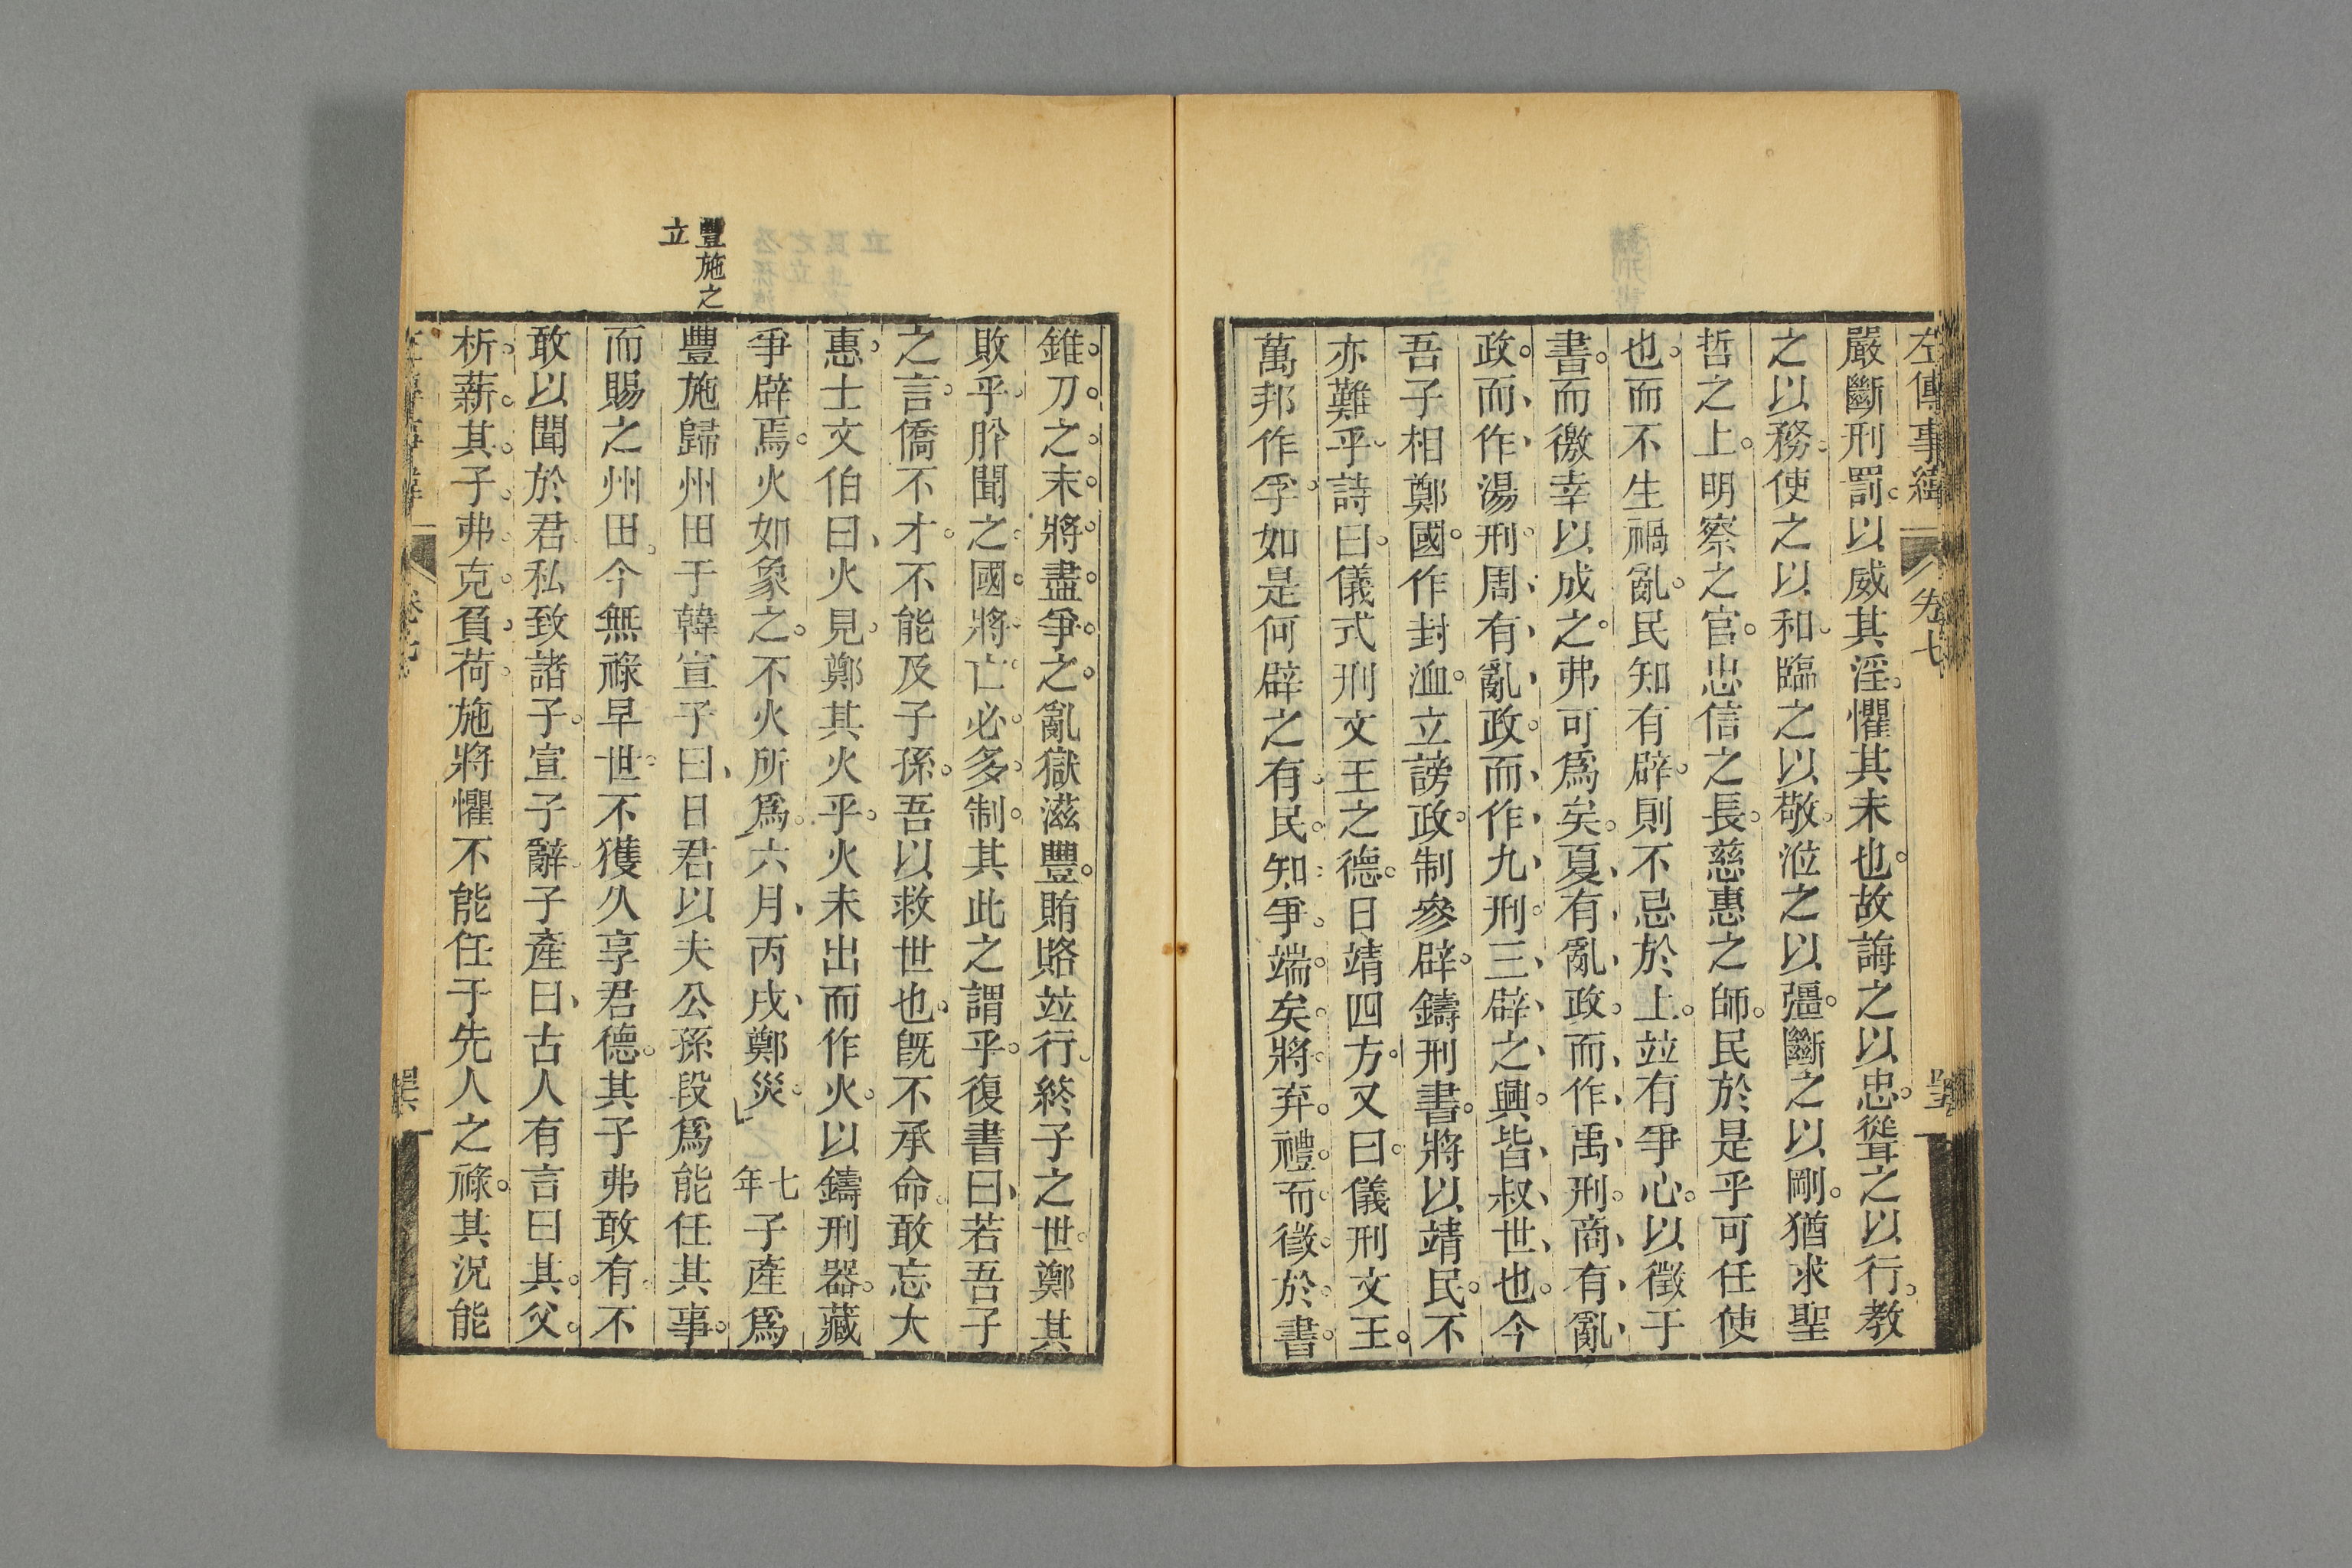 左傳事緯 卷七
嚴斷刑罰以威其淫懼其未也故誨之以忠聳之以行教
之以務使之以和臨之以敬涖之以彊斷之以剛猶求聖
哲之上明察之官忠信之長慈惠之師民於是乎可任使
也而不生禍亂民知有辟則不忌於上竝有爭心以徵于
書而徼幸以成之弗可爲矣夏有亂政而作禹刑商有亂
政而作湯刑周有亂政而作九刑三辟之興皆叔世也今
吾子相鄭國作封洫立謗政制參辟鑄刑書將以靖民不
亦難乎詩曰儀式刑文王之德日靖四方又曰儀刑文王
萬邦作孚如是何辟之有民知爭端矣將弃禮而徵於書
錐刀之末將盡爭之亂獄滋豐賄賂竝行終子之世鄭其
敗乎肸聞之國將亡必多制其此之謂乎復書曰若吾子
之言僑不才不能及子孫吾以救世也旣不承命敢忘大
惠士文伯曰火見鄭其火乎火未出而作火以鑄刑器藏
爭辟焉火如象之不火所爲六月丙戌鄭災 七年 子產爲
豐施之
立
豐施歸州田于韓宣子曰日君以夫公孫段爲能任其事
而賜之州田今無祿早世不獲久享君德其子弗敢有不
敢以聞於君私致諸子宣子辭子產曰古人有言曰其父
析薪其子弗克負荷施將懼不能任于先人之祿其況能